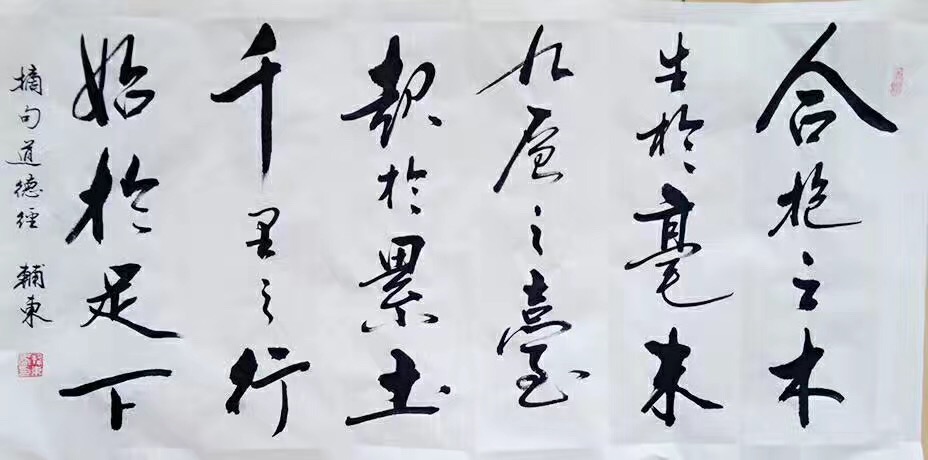 合抱之木
生於毫末
九層之臺
起於累土
千里之行
始於足下
摘句道德經 輔東